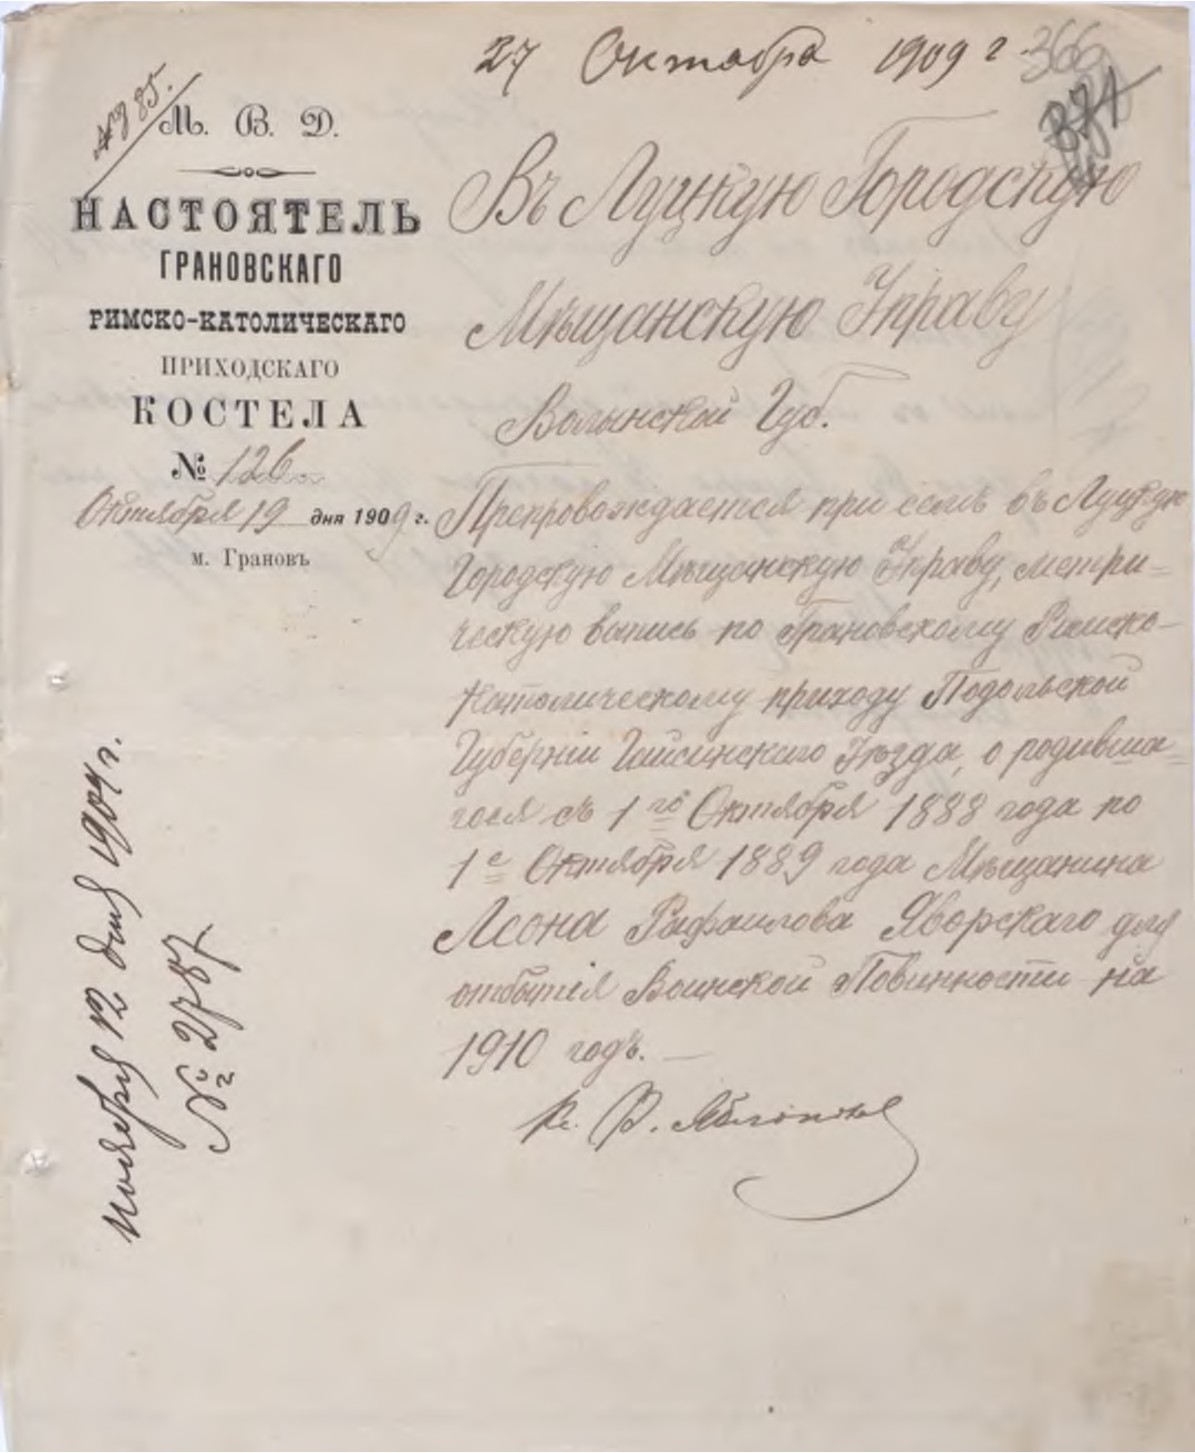 27 Октабра 1909 г.
366
371
№ 785.
М. В. Д.
НАСТОЯТЕЛЬ
ГРАНОВСКАГО
РИМСКО-КАТОЛИЧЕСКАГО
ПРИХОДСКАГО
КОСТЕЛА
№ 126
Октября 19 дня 1909 г.
м. Грановъ
Въ Луцкую Городскую
Мѣщанскую Управу
Волынской Губ.
Препровождается при семъ въ Луцкую
Городскую Мѣщанскую Управу, метри-
ческую выпись по Грановскому Римско-
Католическому приходу Подольской
Губерніи Гайсинскаго Уѣзда, о родивша-
гося съ 1го Октября 1888 года по
1е Октября 1889 года Мѣщанина
Леона Рафаилова Яворскаго для
отбытія Воинской Повинности на
1910 годъ. —
Кс. В.
Ноября 12 дня 1909 г.
№ 2787